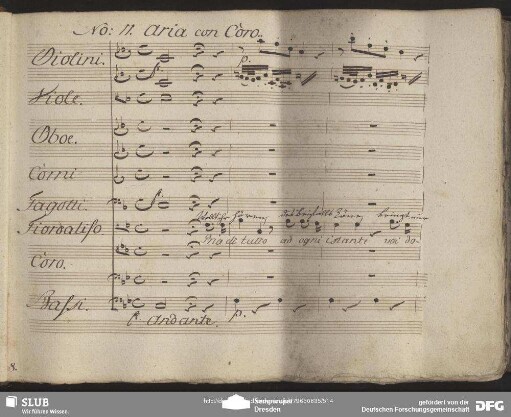 No: 11. Aria con Coro.
Violini.
f
p.
Viole.
Oboe.
Corni
Fagotti.
Fiordaliso
Ma di tutto ad ogni istanti voi do-
Coro.
Bassi.
f. Andante.
p.
SLUB
Wir führen Wissen.
Dresden
gefördert von der
Deutschen Forschungsgemeinschaft
DFG